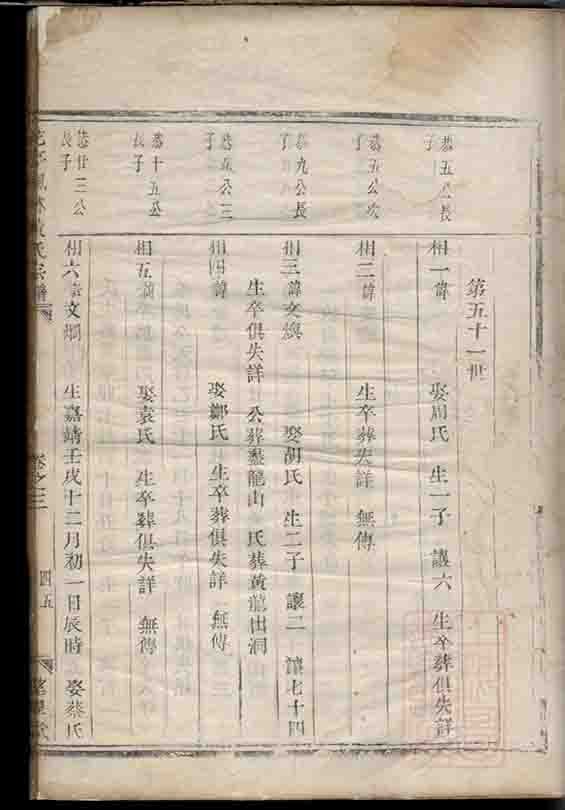 第五十一世
恭五公長子
相一諱 娶周氏 生一子 讓六 生卒葬俱失詳
恭五公次子
相二諱 生卒葬失詳 無傳
恭九公長子
相三諱文煥 娶胡氏 生二子 讓二 讓七十四
生卒俱失詳 公葬盤龍山 氏葬黃龍出洞
恭五公三子
相四諱 娶鄭氏 生卒葬俱失詳 無傳
恭十五公長子
相五諱 娶袁氏 生卒葬俱失詳 無傳
恭廿三公長子
相六諱文炯 生嘉靖壬戌十二月初一日辰時 娶蔡氏
氏宗譜 卷之三 四五